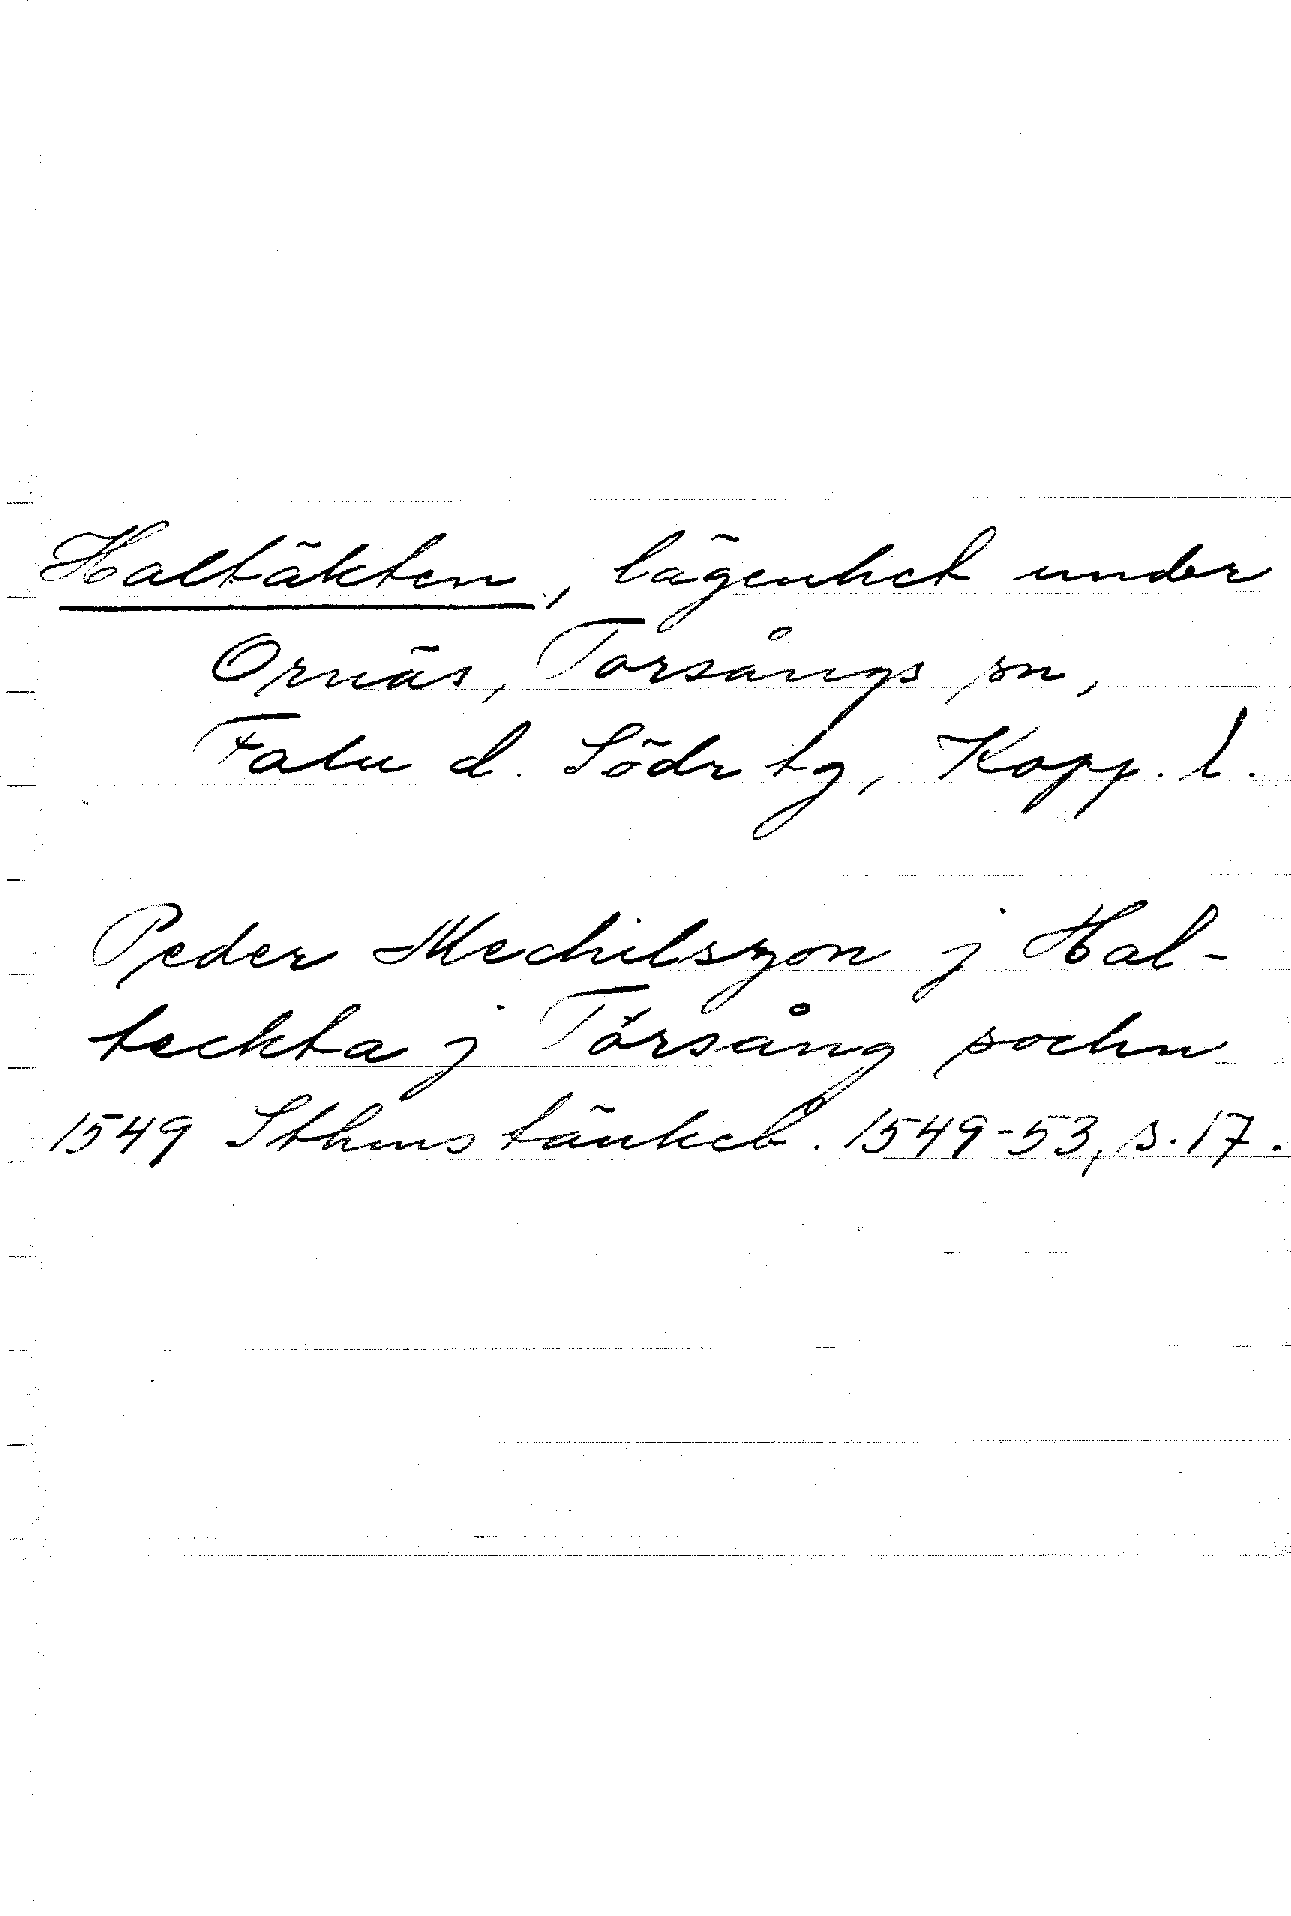 Haltäkten, lägenhet under
Ornäs, Torsångs sn,
Falu d. Södr tg, Kopp. l.
Peder Mechilszon j Hal-
teckta j Torsång sochn
1549 Sthms tänkeb. 1549-53, s. 17.